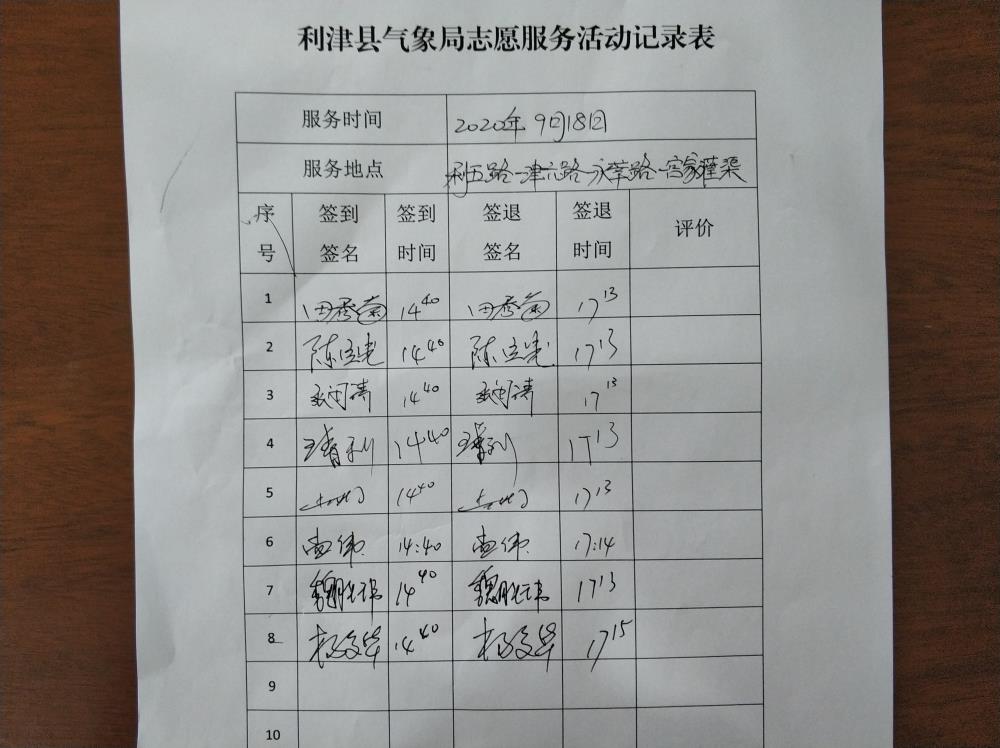 利津县气象局志愿服务活动记录表
服务时间 2020年9月18日
服务地点 利五路-津六路-永莘路-宫家灌渠
序号 签到签名 签到时间 签退签名 签退时间 评价
1 田秀菊 14 40 田秀菊 17 13
2 陈立 14 40 陈立 17 13
3 14 40 17 13
4 14 40 17 13
5 14 40 17 13
6 伟 14:40 伟 17:14
7 魏 14 40 魏 17 13
8 杨 14 40 杨 17 15
9
10